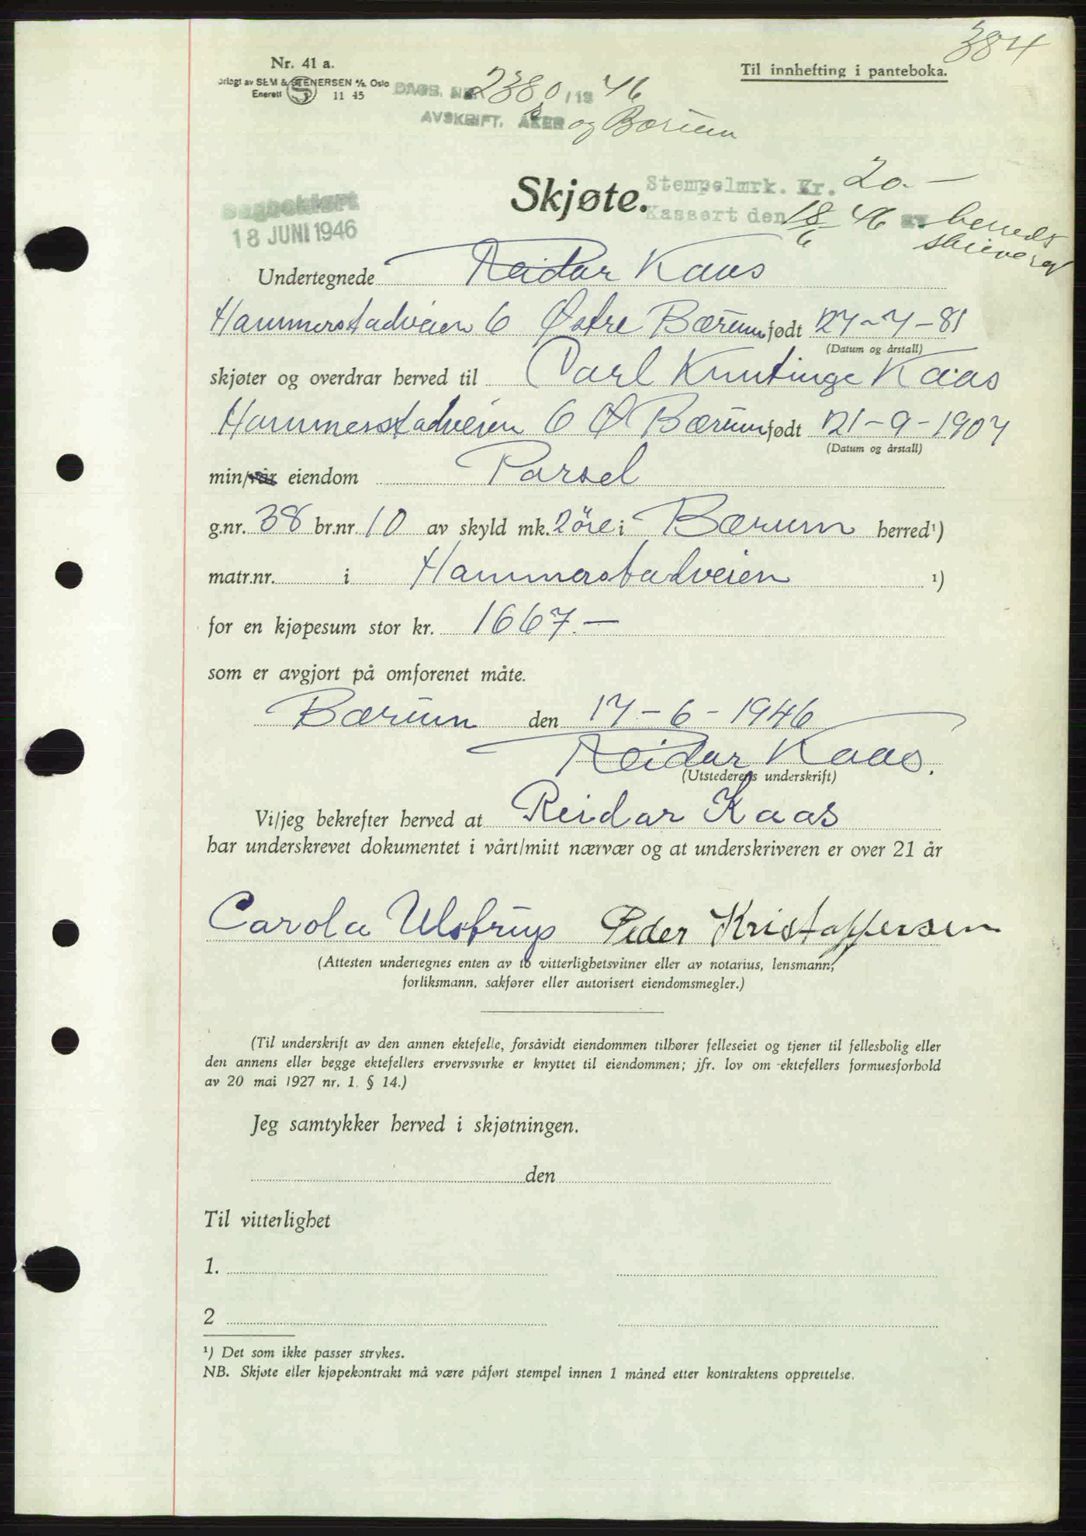 384
Nr. 41 a.
Til innhefting i panteboka.
orlagt av SEM & STENERSEN A/S, Oslo
Enerett S 11 45
DAGB. NR. 2380 /19 46
AVSKRIFT. AKER og Bærum
Stempelmrk. Kr. 20.—
Skjøte.
Kassert den 18/6 46 av herreds
skriveren
Dagbokført
18 JUNI 1946
Undertegnede Reidar Kaas
Hammerstadveien 6 Østre Bærum født 27-7-81
(Datum og årstall)
skjøter og overdrar herved til Carl Knutinge Kaas
Hammerstadveien 6 Ø Bærum født 21-9-1907
(Datum og årstall)
min/vår eiendom Parsel
g.nr. 38 br.nr. 10 av skyld mk. 2 øre i Bærum herred¹)
matr.nr. i Hammerstadveien ¹)
for en kjøpesum stor kr. 1667.—
som er avgjort på omforenet måte.
Bærum den 17-6-1946
Reidar Kaas.
(Utstederens underskrift)
Vi/jeg bekrefter herved at Reidar Kaas
har underskrevet dokumentet i vårt/mitt nærvær og at underskriveren er over 21 år
Carola Ulstrup Peder Kristoffersen
(Attesten undertegnes enten av to vitterlighetsvitner eller av notarius, lensmann,
forliksmann, sakfører eller autorisert eiendomsmegler.)
(Til underskrift av den annen ektefelle, forsåvidt eiendommen tilhører felleseiet og tjener til fellesbolig eller
den annens eller begge ektefellers ervervsvirke er knyttet til eiendommen; jfr. lov om ektefellers formuesforhold
av 20 mai 1927 nr. 1. § 14.)
Jeg samtykker herved i skjøtningen.
den
Til vitterlighet
1.
2
¹) Det som ikke passer strykes.
NB. Skjøte eller kjøpekontrakt må være påført stempel innen 1 måned etter kontraktens opprettelse.